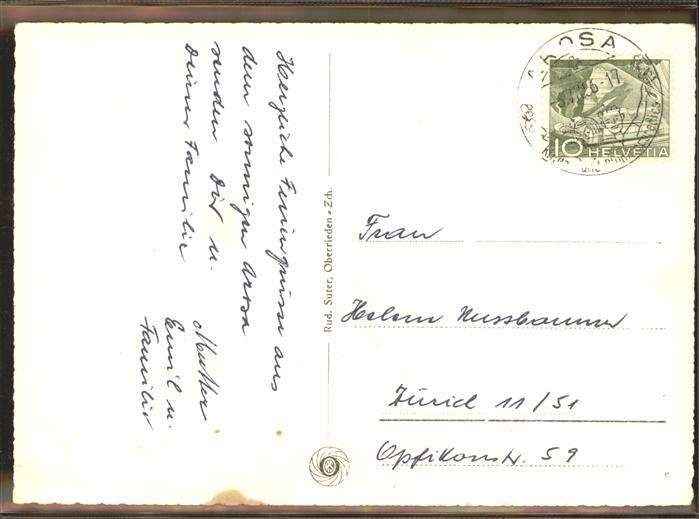 Herzliche Feriengrüsse aus
dem sonnigen Arosa
senden Dir u.
Deiner Familie
Mutter
Emil u.
Familie
Rud. Suter, Oberrieden - Zch.
AROSA
10 HELVETIA
Frau
Helene Nussbaumer
Zürich 11/51
Opfikonstr. 59